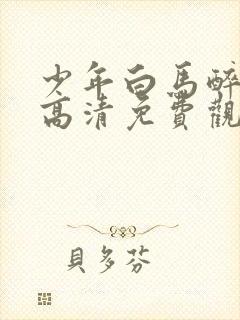 少年白馬醉
高清免費觀
貝多芬